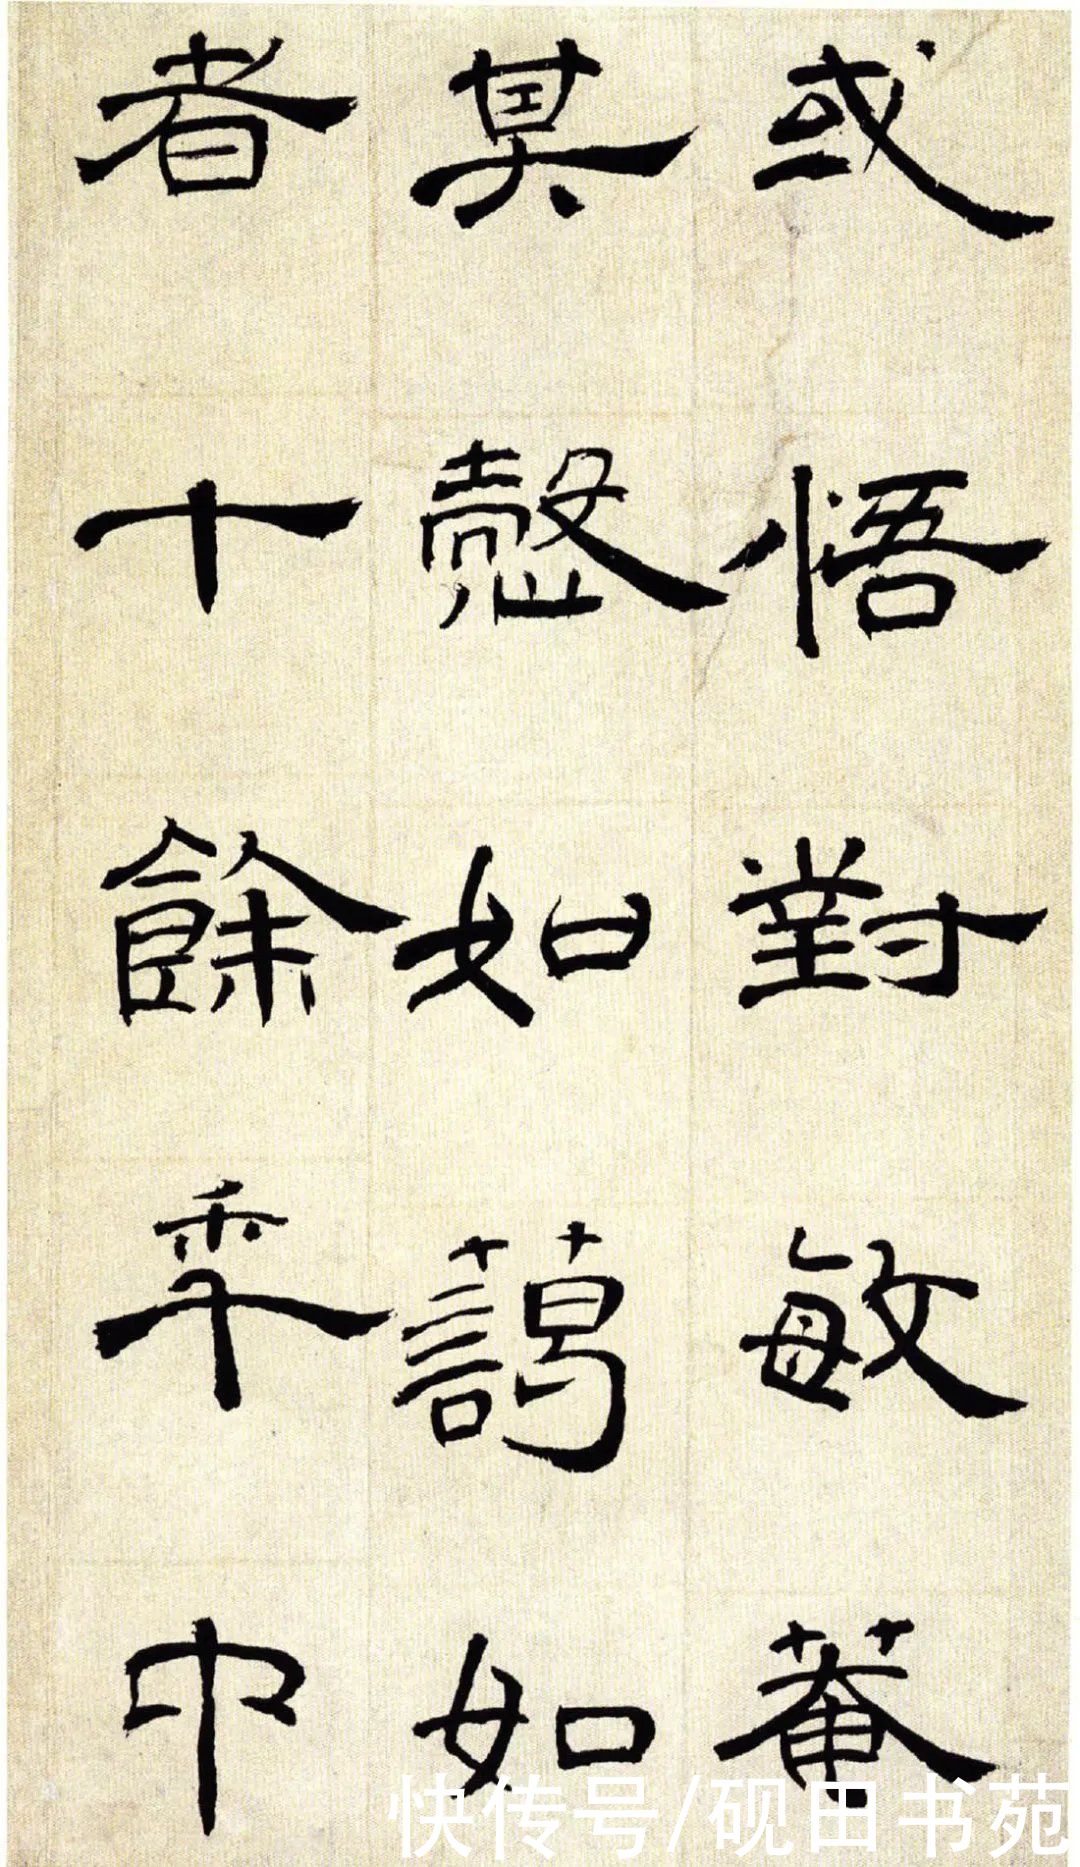 或悟對敏菴
其愨如藹如
者十餘秊巾
快传号/砚田书苑